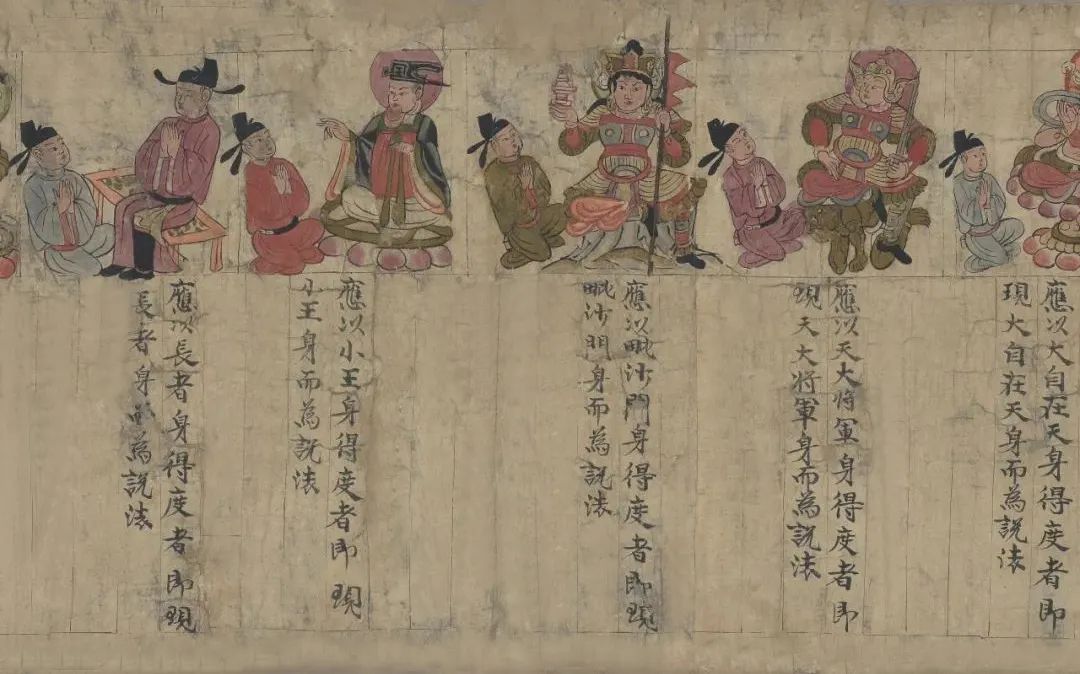 應以大自在天身得度者即
現大自在天身而為說法
應以天大將軍身得度者即
現天大將軍身而為說法
應以毗沙門身得度者即現
毗沙門身而為說法
應以小王身得度者即現
小王身而為說法
應以長者身得度者即現
長者身而為說法